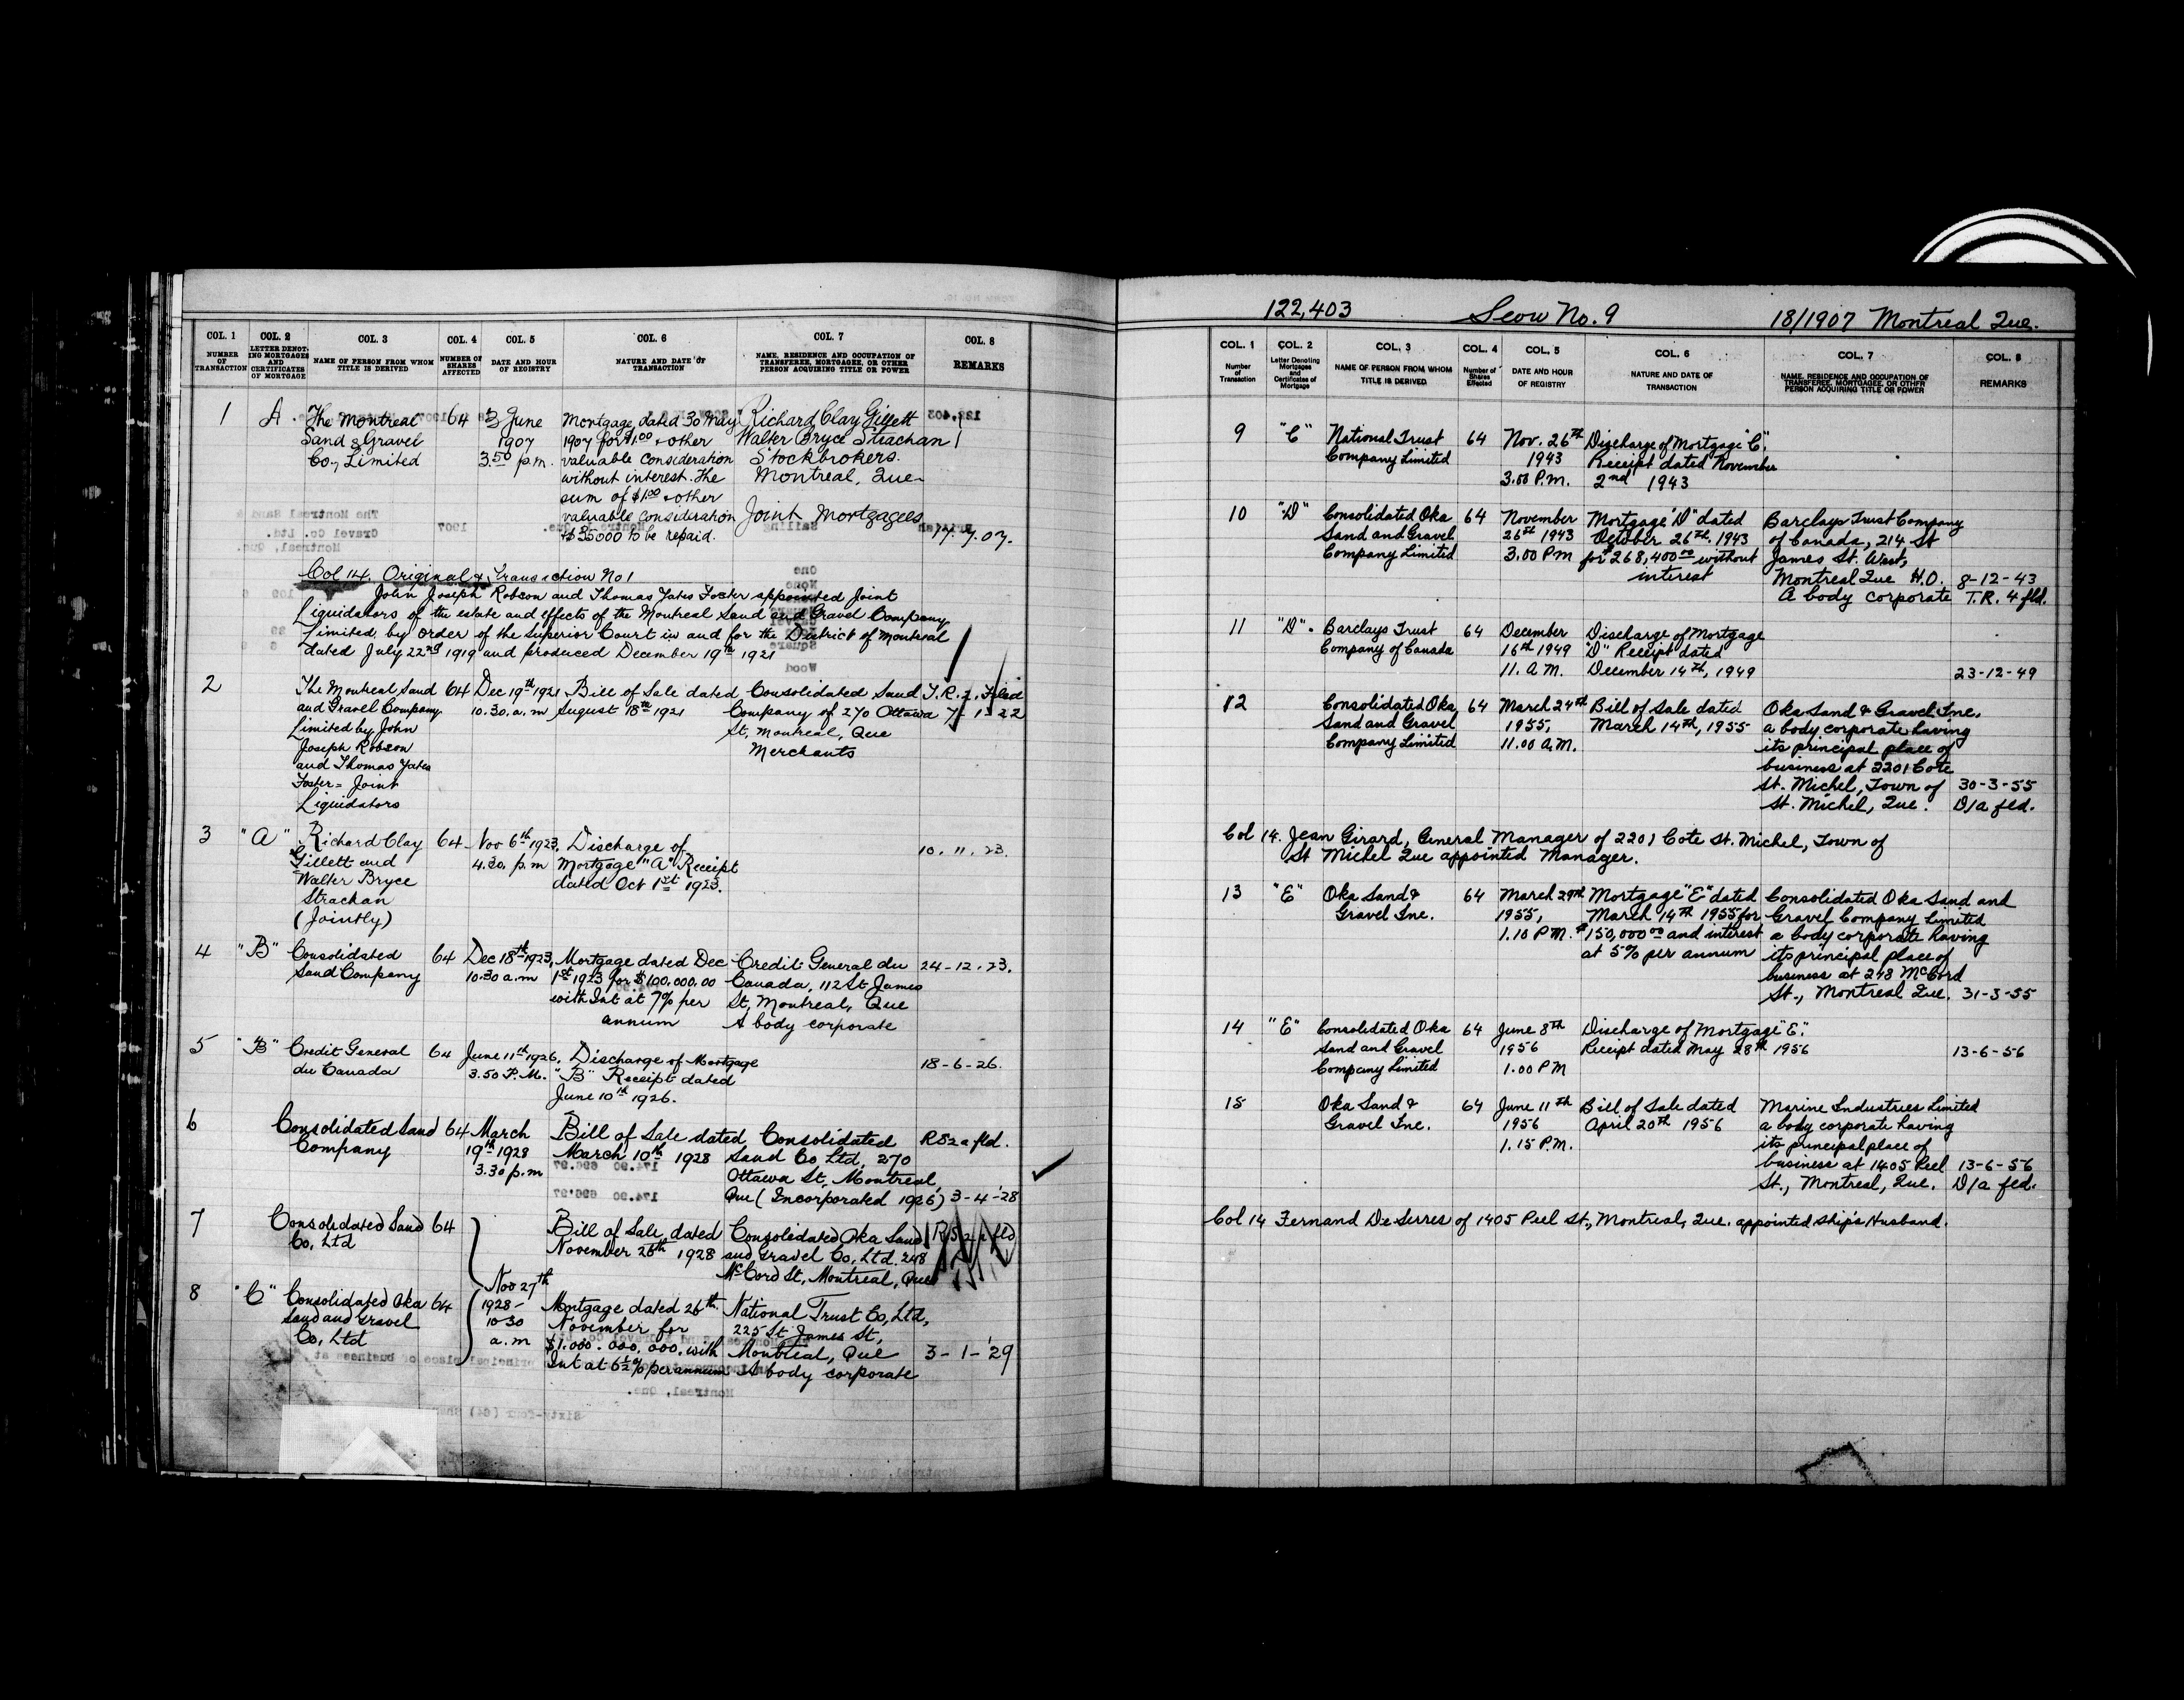 COL. 1 COL. 2 COL. 3 COL. 4 COL. 5 COL. 6 COL. 7 COL. 8
NUMBER OF TRANSACTION
LETTER DENOTING MORTGAGES AND CERTIFICATES OF MORTGAGE
NAME OF PERSON FROM WHOM TITLE IS DERIVED
NUMBER OF SHARES AFFECTED
DATE AND HOUR OF REGISTRY
NATURE AND DATE OF TRANSACTION
NAME, RESIDENCE AND OCCUPATION OF TRANSFEREE, MORTGAGEE, OR OTHER PERSON ACQUIRING TITLE OR POWER
REMARKS
1 A The Montreal 64 3 June Mortgage dated 30 May Richard Clay Gillett
Sand & Gravel 1907 1907 for $1.00 + other Walter Bryce Strachan
Co., Limited 3.50 p.m. valuable consideration Stockbrokers.
without interest. The Montreal, Que
sum of $1.00 + other
valuable consideration Joint Mortgagees
+ $35000 to be repaid. 17.7.07.
Col 14. Original & Transaction No 1
John Joseph Robson and Thomas Yates Foster appointed Joint
Liquidators of the estate and effects of the Montreal Sand and Gravel Company
Limited, by order of the Superior Court in and for the District of Montreal
dated July 22nd 1919 and produced December 19th 1921
2 The Montreal Sand 64 Dec 19th 1921 Bill of Sale dated Consolidated Sand T.R.2. Filed
and Gravel Company 10.30. a.m August 18th 1921 Company of 270 Ottawa 7-1-22
Limited by John St, Montreal, Que
Joseph Robson Merchants
and Thomas Yates
Foster = Joint
Liquidators
3 "A" Richard Clay 64 Nov 6th 1923, Discharge of 10.11.23.
Gillett and 4.30. p.m Mortgage "A" Receipt
Walter Bryce dated Oct 1st 1923.
Strachan
(Jointly)
4 "B" Consolidated 64 Dec 18th 1923, Mortgage dated Dec Credit General du 24-12-23.
Sand Company 10.30 a.m 1st 1923 for $100,000.00 Canada, 112 St James
with Int at 7% per St, Montreal, Que
annum A body corporate
5 "B" Credit General 64 June 11th 1926, Discharge of Mortgage 18-6-26.
du Canada 3.50 P.M. "B" Receipt dated
June 10th 1926.
6 Consolidated Sand 64 March Bill of Sale dated Consolidated R52a fld.
Company 19th 1928 March 10th 1928 Sand Co Ltd, 270
3.30 p.m Ottawa St, Montreal,
Que (Incorporated 1926) 3-4-'28
7 Consolidated Sand 64 Bill of Sale, dated Consolidated Oka Sand
Co, Ltd November 26th 1928 and Gravel Co, Ltd. 248
McCord St, Montreal, Que
8 "C" Consolidated Oka 64 Nov 27th 1928- Mortgage dated 26th National Trust Co, Ltd,
Sand and Gravel 10-30 November for 225 St James St,
Co, Ltd a.m $1.000.000,000. with Montreal, Que 3-1-'29
Int at 6½% per annum A body corporate
122,403 Scow No. 9 18/1907 Montreal Que.
COL. 1 COL. 2 COL. 3 COL. 4 COL. 5 COL. 6 COL. 7 COL. 8
Number of Transaction
Letter Denoting Mortgages and Certificates of Mortgage
NAME OF PERSON FROM WHOM TITLE IS DERIVED
Number of Shares Effected
DATE AND HOUR OF REGISTRY
NATURE AND DATE OF TRANSACTION
NAME, RESIDENCE AND OCCUPATION OF TRANSFEREE, MORTGAGEE, OR OTHER PERSON ACQUIRING TITLE OR POWER
REMARKS
9 "C" National Trust 64 Nov. 26th Discharge of Mortgage "C".
Company Limited 1943 Receipt dated November
3.00 P.M. 2nd 1943
10 "D" Consolidated Oka 64 November Mortgage "D" dated Barclays Trust Company
Sand and Gravel 26th 1943 October 26th 1943 of Canada, 214 St
Company Limited 3.00 PM for $268,400.00 without James St. West,
interest Montreal Que H.O. 8-12-43
A body corporate T.R. 4 fld.
11 "D". Barclays Trust 64 December Discharge of Mortgage
Company of Canada 16th 1949 "D" Receipt dated
11. A.M. December 14th, 1949 23-12-49
12 Consolidated Oka 64 March 24th Bill of Sale dated Oka Sand & Gravel Inc.
Sand and Gravel 1955, March 14th, 1955 a body corporate having
Company Limited 11.00 A.M. its principal place of
business at 2201 Cote
St. Michel, Town of 30-3-55
St. Michel, Que. D/a fld.
Col 14. Jean Girard, General Manager of 2201 Cote St. Michel, Town of
St Michel Que appointed Manager.
13 "E" Oka Sand & 64 March 29th Mortgage "E" dated Consolidated Oka Sand and
Gravel Inc. 1955, March 14th 1955 for Gravel Company Limited
1.10 P.M. $150,000.00 and interest a body corporate having
at 5% per annum its principal place of
business at 248 McCord
St., Montreal Que. 31-3-55
14 "E" Consolidated Oka 64 June 8th Discharge of Mortgage "E".
Sand and Gravel 1956 Receipt dated May 28th 1956 13-6-56
Company Limited 1.00 PM
15 Oka Sand & 64 June 11th Bill of Sale dated Marine Industries Limited
Gravel Inc. 1956 April 20th 1956 a body corporate having
1.15 P.M. its principal place of
business at 1405 Peel 13-6-56
St., Montreal, Que. D/a fld.
Col 14 Fernand De Serres of 1405 Peel St., Montreal, Que. appointed Ship's Husband.